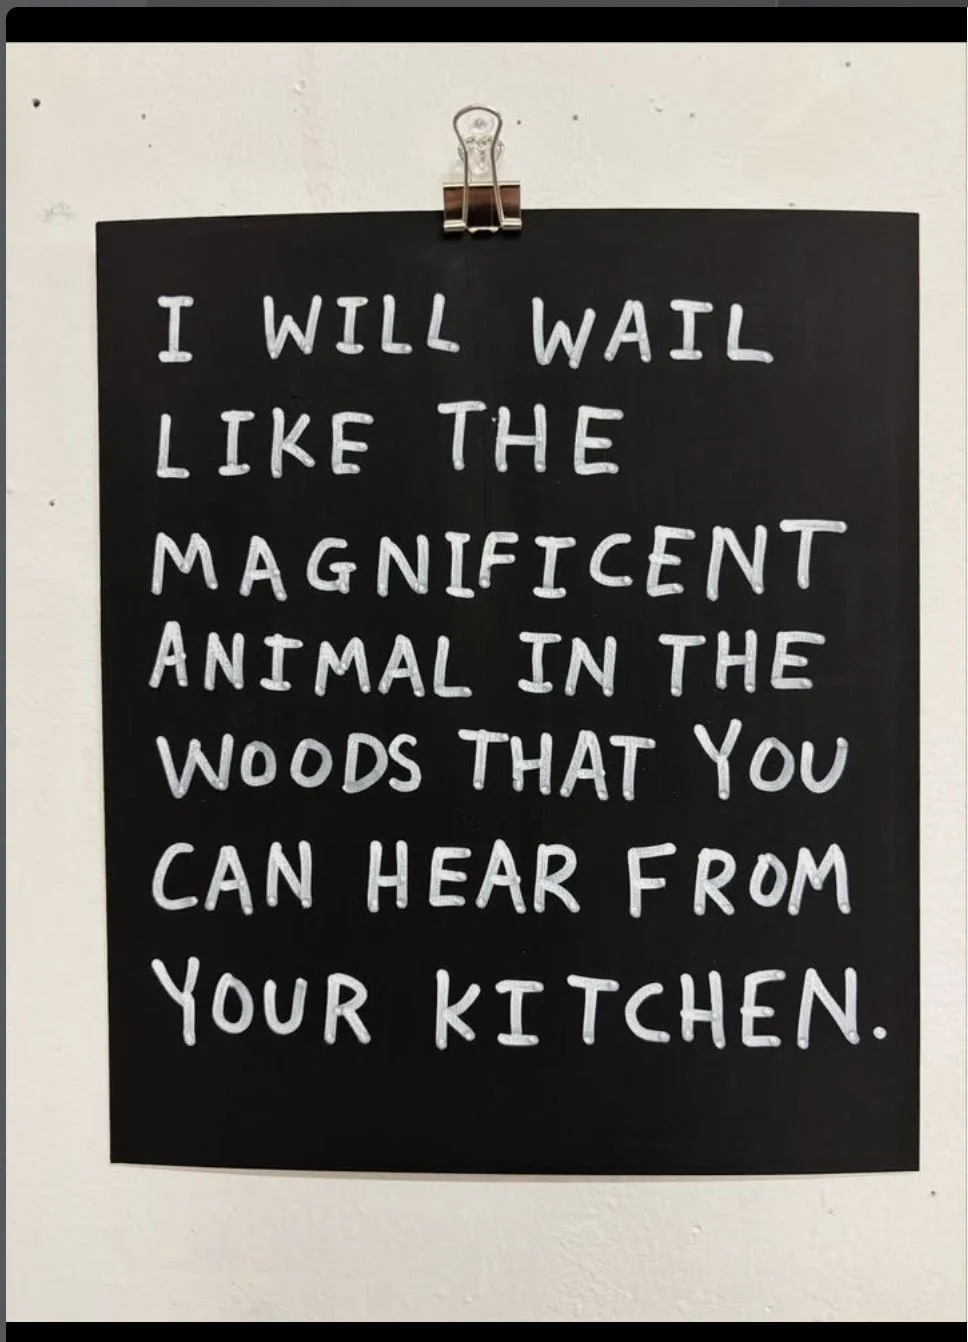 I WILL WAIL
LIKE THE
MAGNIFICENT
ANIMAL IN THE
WOODS THAT YOU
CAN HEAR FROM
YOUR KITCHEN.